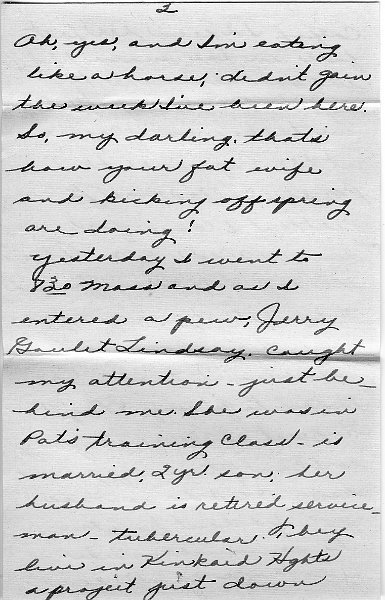 2
Oh, yes, and I'm eating
like a horse, didn't gain
the week I've been here.
So, my darling, that's
how your fat wife
and kicking offspring
are doing!
Yesterday I went to
8³⁰ Mass and as I
entered a pew, Jerry
Goulet Lindsay, caught
my attention - just be-
hind me. She was in
Pat's training class - is
married, 2 yr. son, her
husband is retired service-
man - tubercular. They
live in Kinkaid Hghts
a project just down